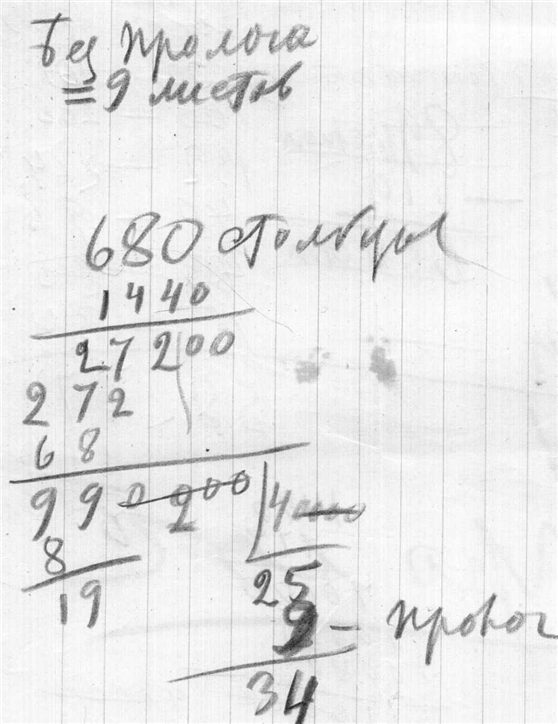 без пролога
= 9 листов
680 столбцы
1440
27200
272
68
990 200 | 40000
8
25
19
9 - пролог
34